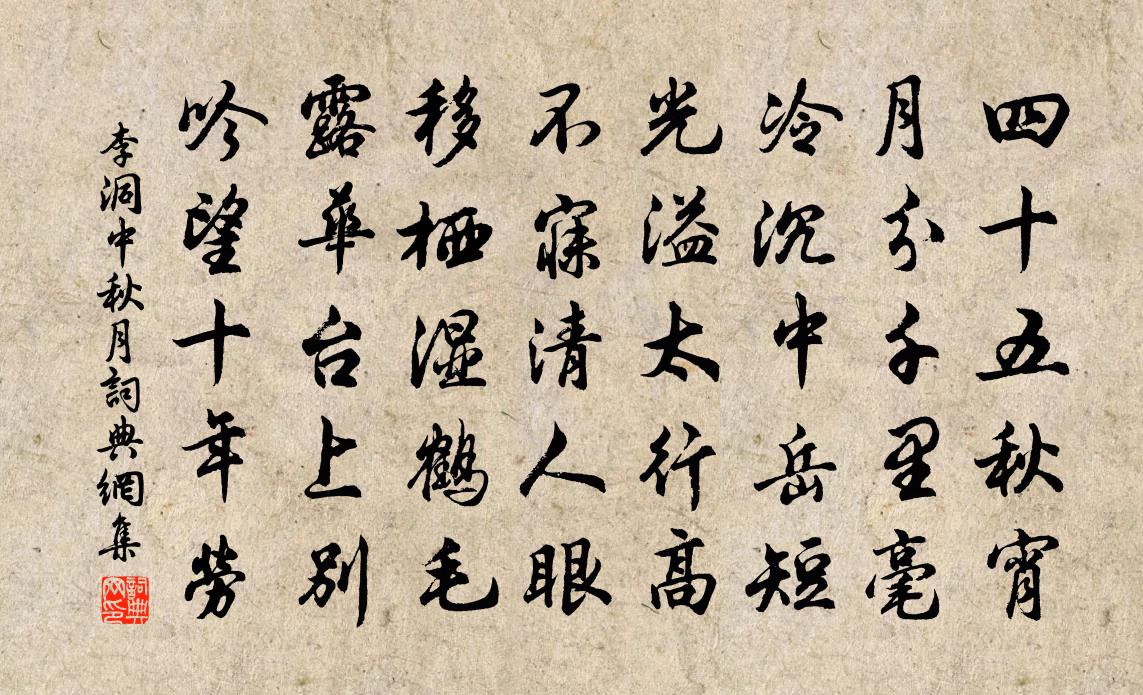 四十五秋宵
月分千里毫
冷沉中岳短
光溢太行高
不寐清人眼
移栖湿鹤毛
露华台上别
吟望十年劳
李洞中秋月詞典網集
詞典网印